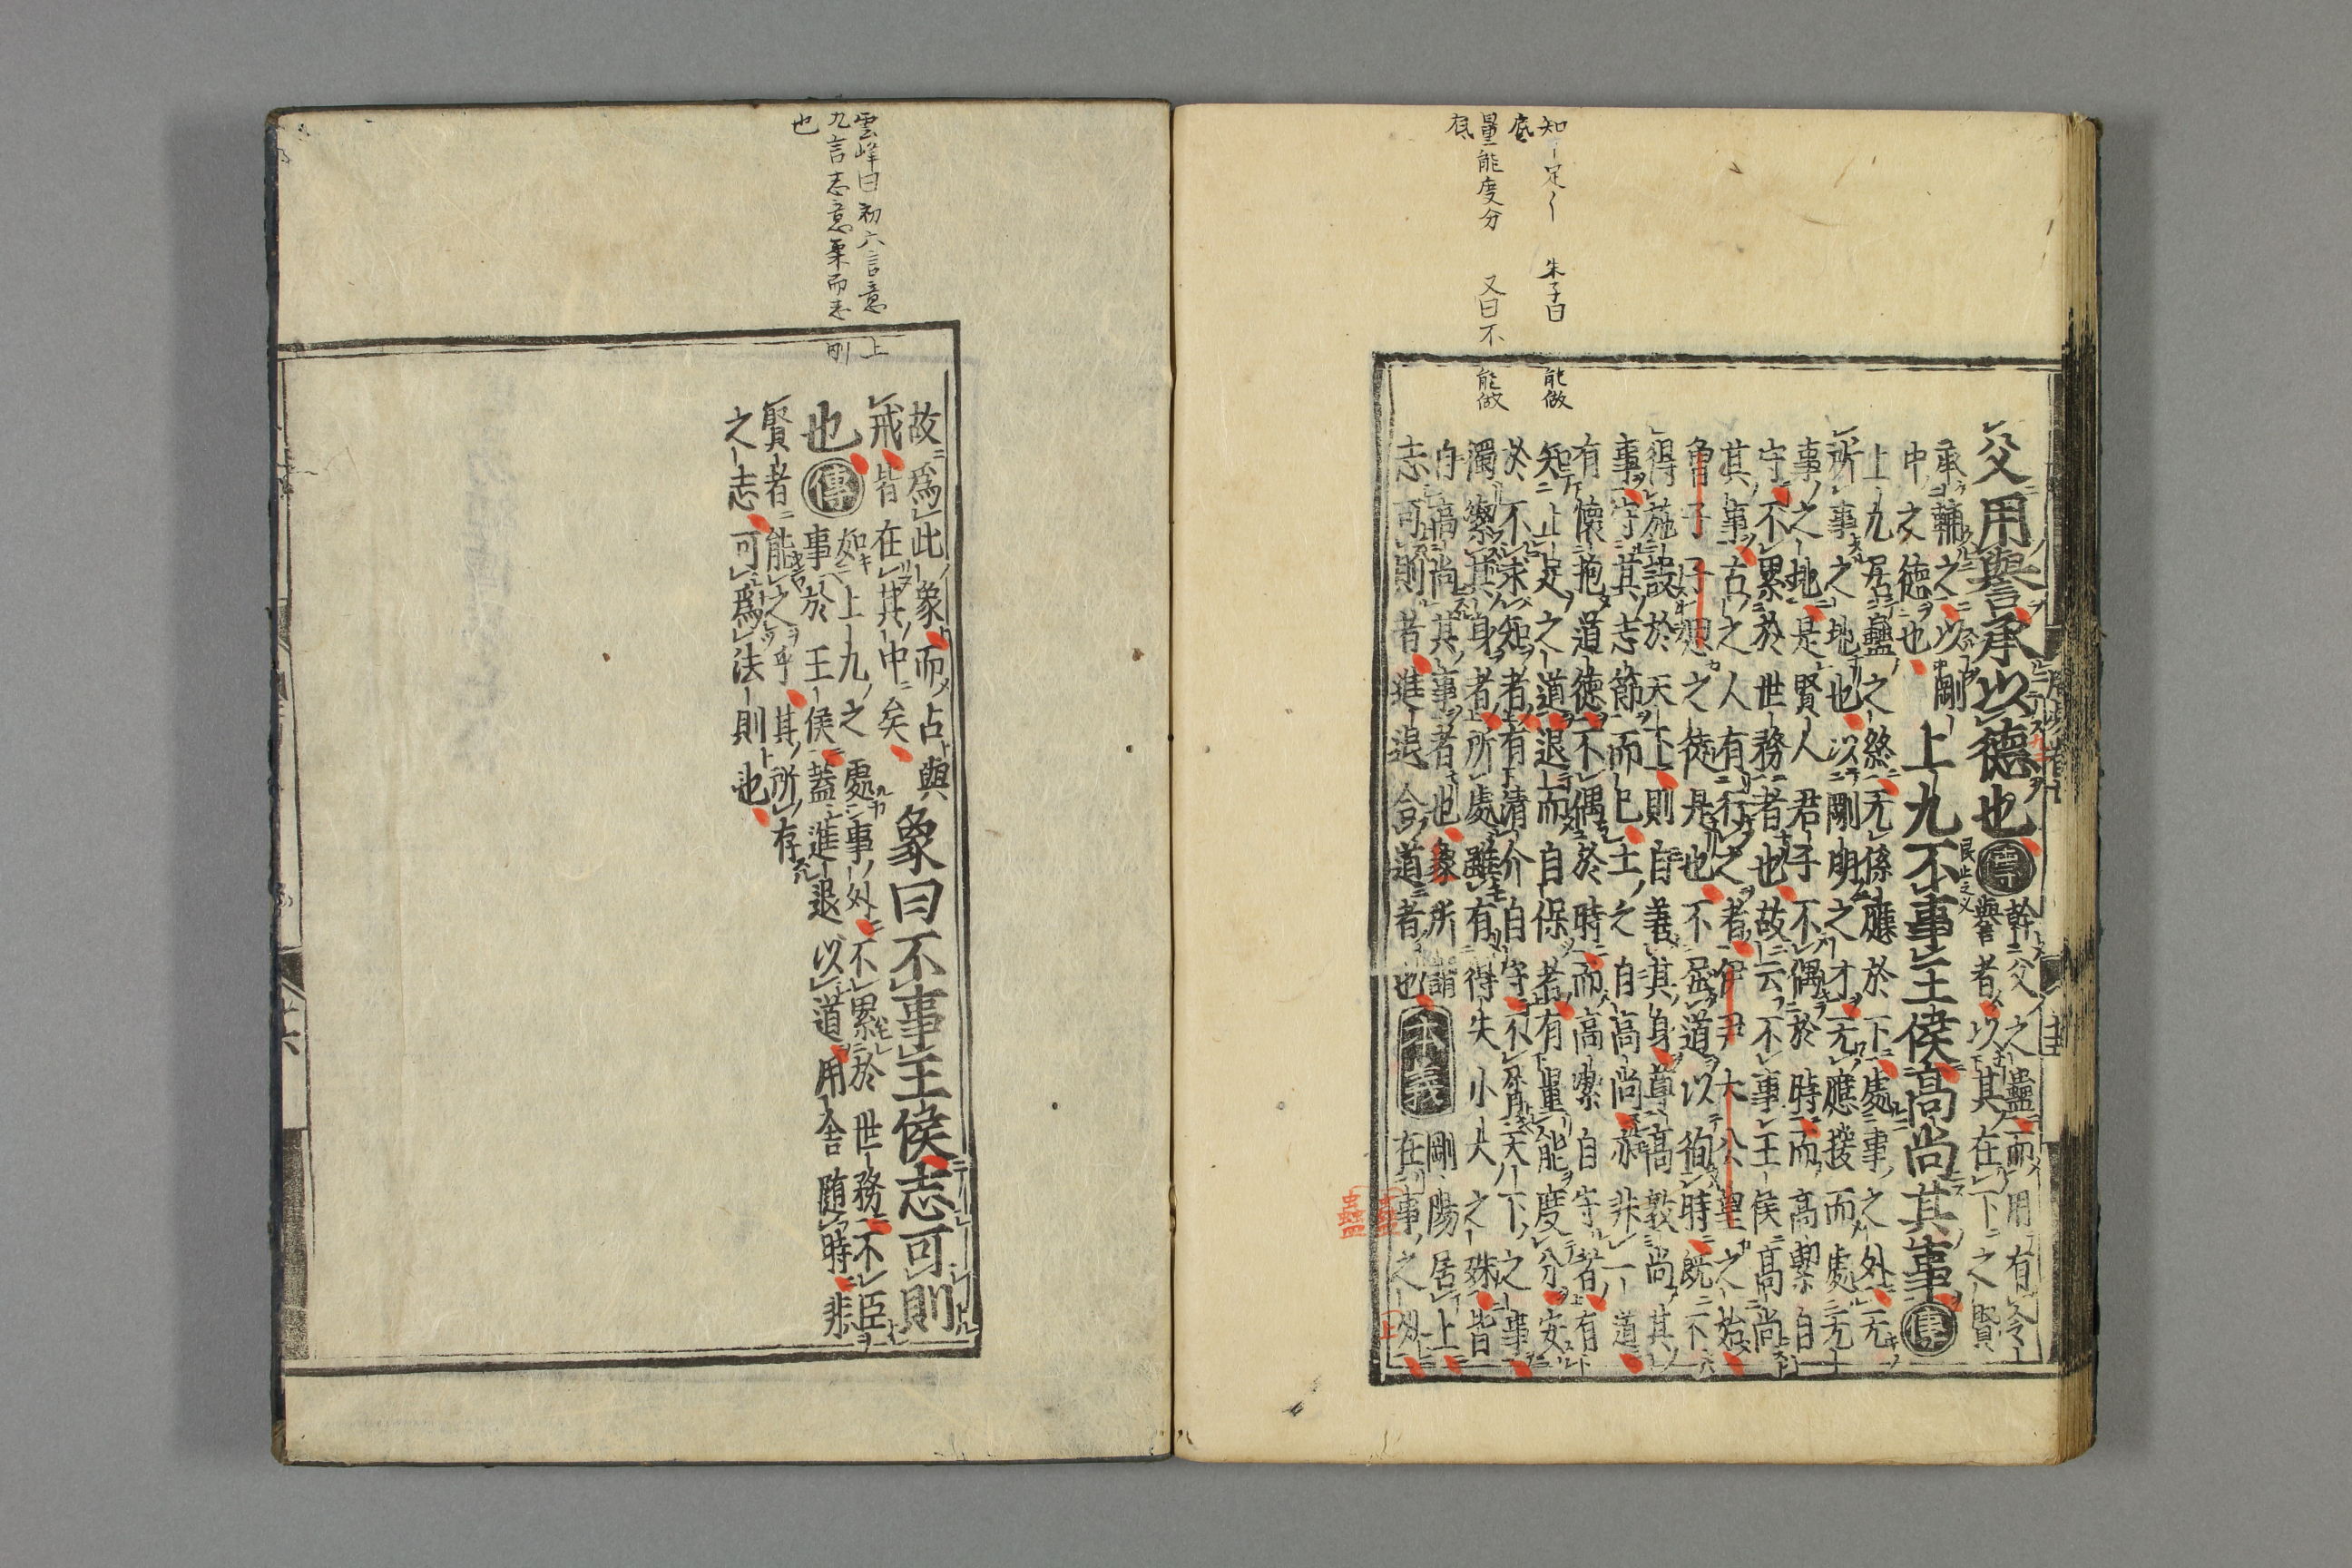 父用譽承以德也 傳 幹父之蠱而用有令
譽者以其在下之賢
承輔之以剛
中之德也 上九不事王侯高尚其事 傳
上九居蠱之終无係應於下處事之外无
所事之地也以剛明之才无應援而處无
事之地是賢人君子不偶於時而高絜自
守不累於世務者也故云不事王侯高尚
其事古之人有行之者伊尹大公望之始
曾子子思之徒是也不屈道以徇時既不
得施設於天下則自善其身尊高敦尚其
事守其志節而已士之自高尚亦非一道
有懷抱道德不偶於時而高絜自守者有
知止足之道退而自保者有量能度分安
於不求知者有清介自守不屑天下之事
獨絜其身者所處雖有得失小大之殊皆
自高尚其事者也象所謂
志可則者進退合道者也 本義 剛陽居上
在事之外
艮止之义
知止足
朱子曰
能做
底
量能度分
又曰不
能做
底
蠱
上
故爲此象而占與
戒皆在其中矣 象曰不事王侯志可則
也 傳 如上九之處事外不累於世務不臣
事於王侯蓋進退以道用舍隨時非
賢者能之乎其所存
之志可爲法則也
雲峰曰初六言意上
九言志意柔而志剛
也